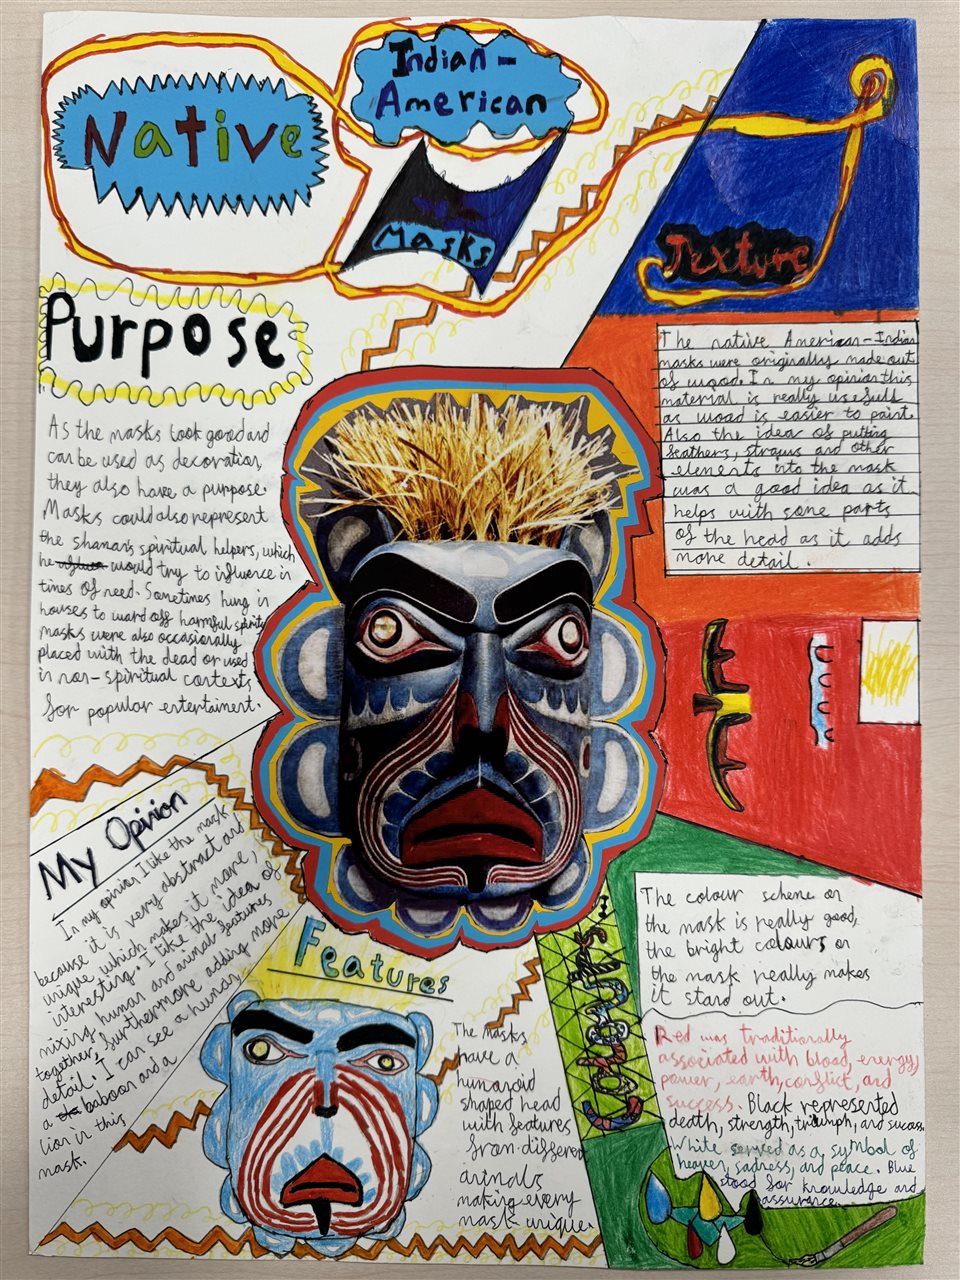 Native
Indian-
American
Masks
Texture
Purpose
The native American-Indian
masks were originally made out
of wood. In my opinion this
material is really usefull
as wood is easier to paint.
Also the idea of putting
feathers, straws and other
elements into the mask
was a good idea as it
helps with some parts
of the head as it adds
more detail.
As the masks look good and
can be used as decoration,
they also have a purpose.
Masks could also represent
the shaman's spiritual helpers, which
he would try to influence in
times of need. Sometimes hung in
houses to ward off harmful spirits
masks were also occasionally
placed with the dead or used
in non-spiritual contexts
for popular entertaiment.
My Opinion
In my opinion I like the mask
because it is very abstract and
unique which makes it more
interesting. I like the idea of
mixing human and animal features
together, furthermore adding more
detail. I can see a human,
a baboon and a
lion in this
mask.
Features
The masks
have a
humanoid
shaped head
with features
from different
animals
making every
mask unique.
Colours
The colour scheme on
the mask is really good,
the bright colours on
the mask really makes
it stand out.
Red was traditionally
associated with blood, energy,
power, earth, conflict, and
success. Black represented
death, strength, triumph, and success
White served as a symbol of
heaven, sadness, and peace. Blue
stood for knowledge and
assurance.